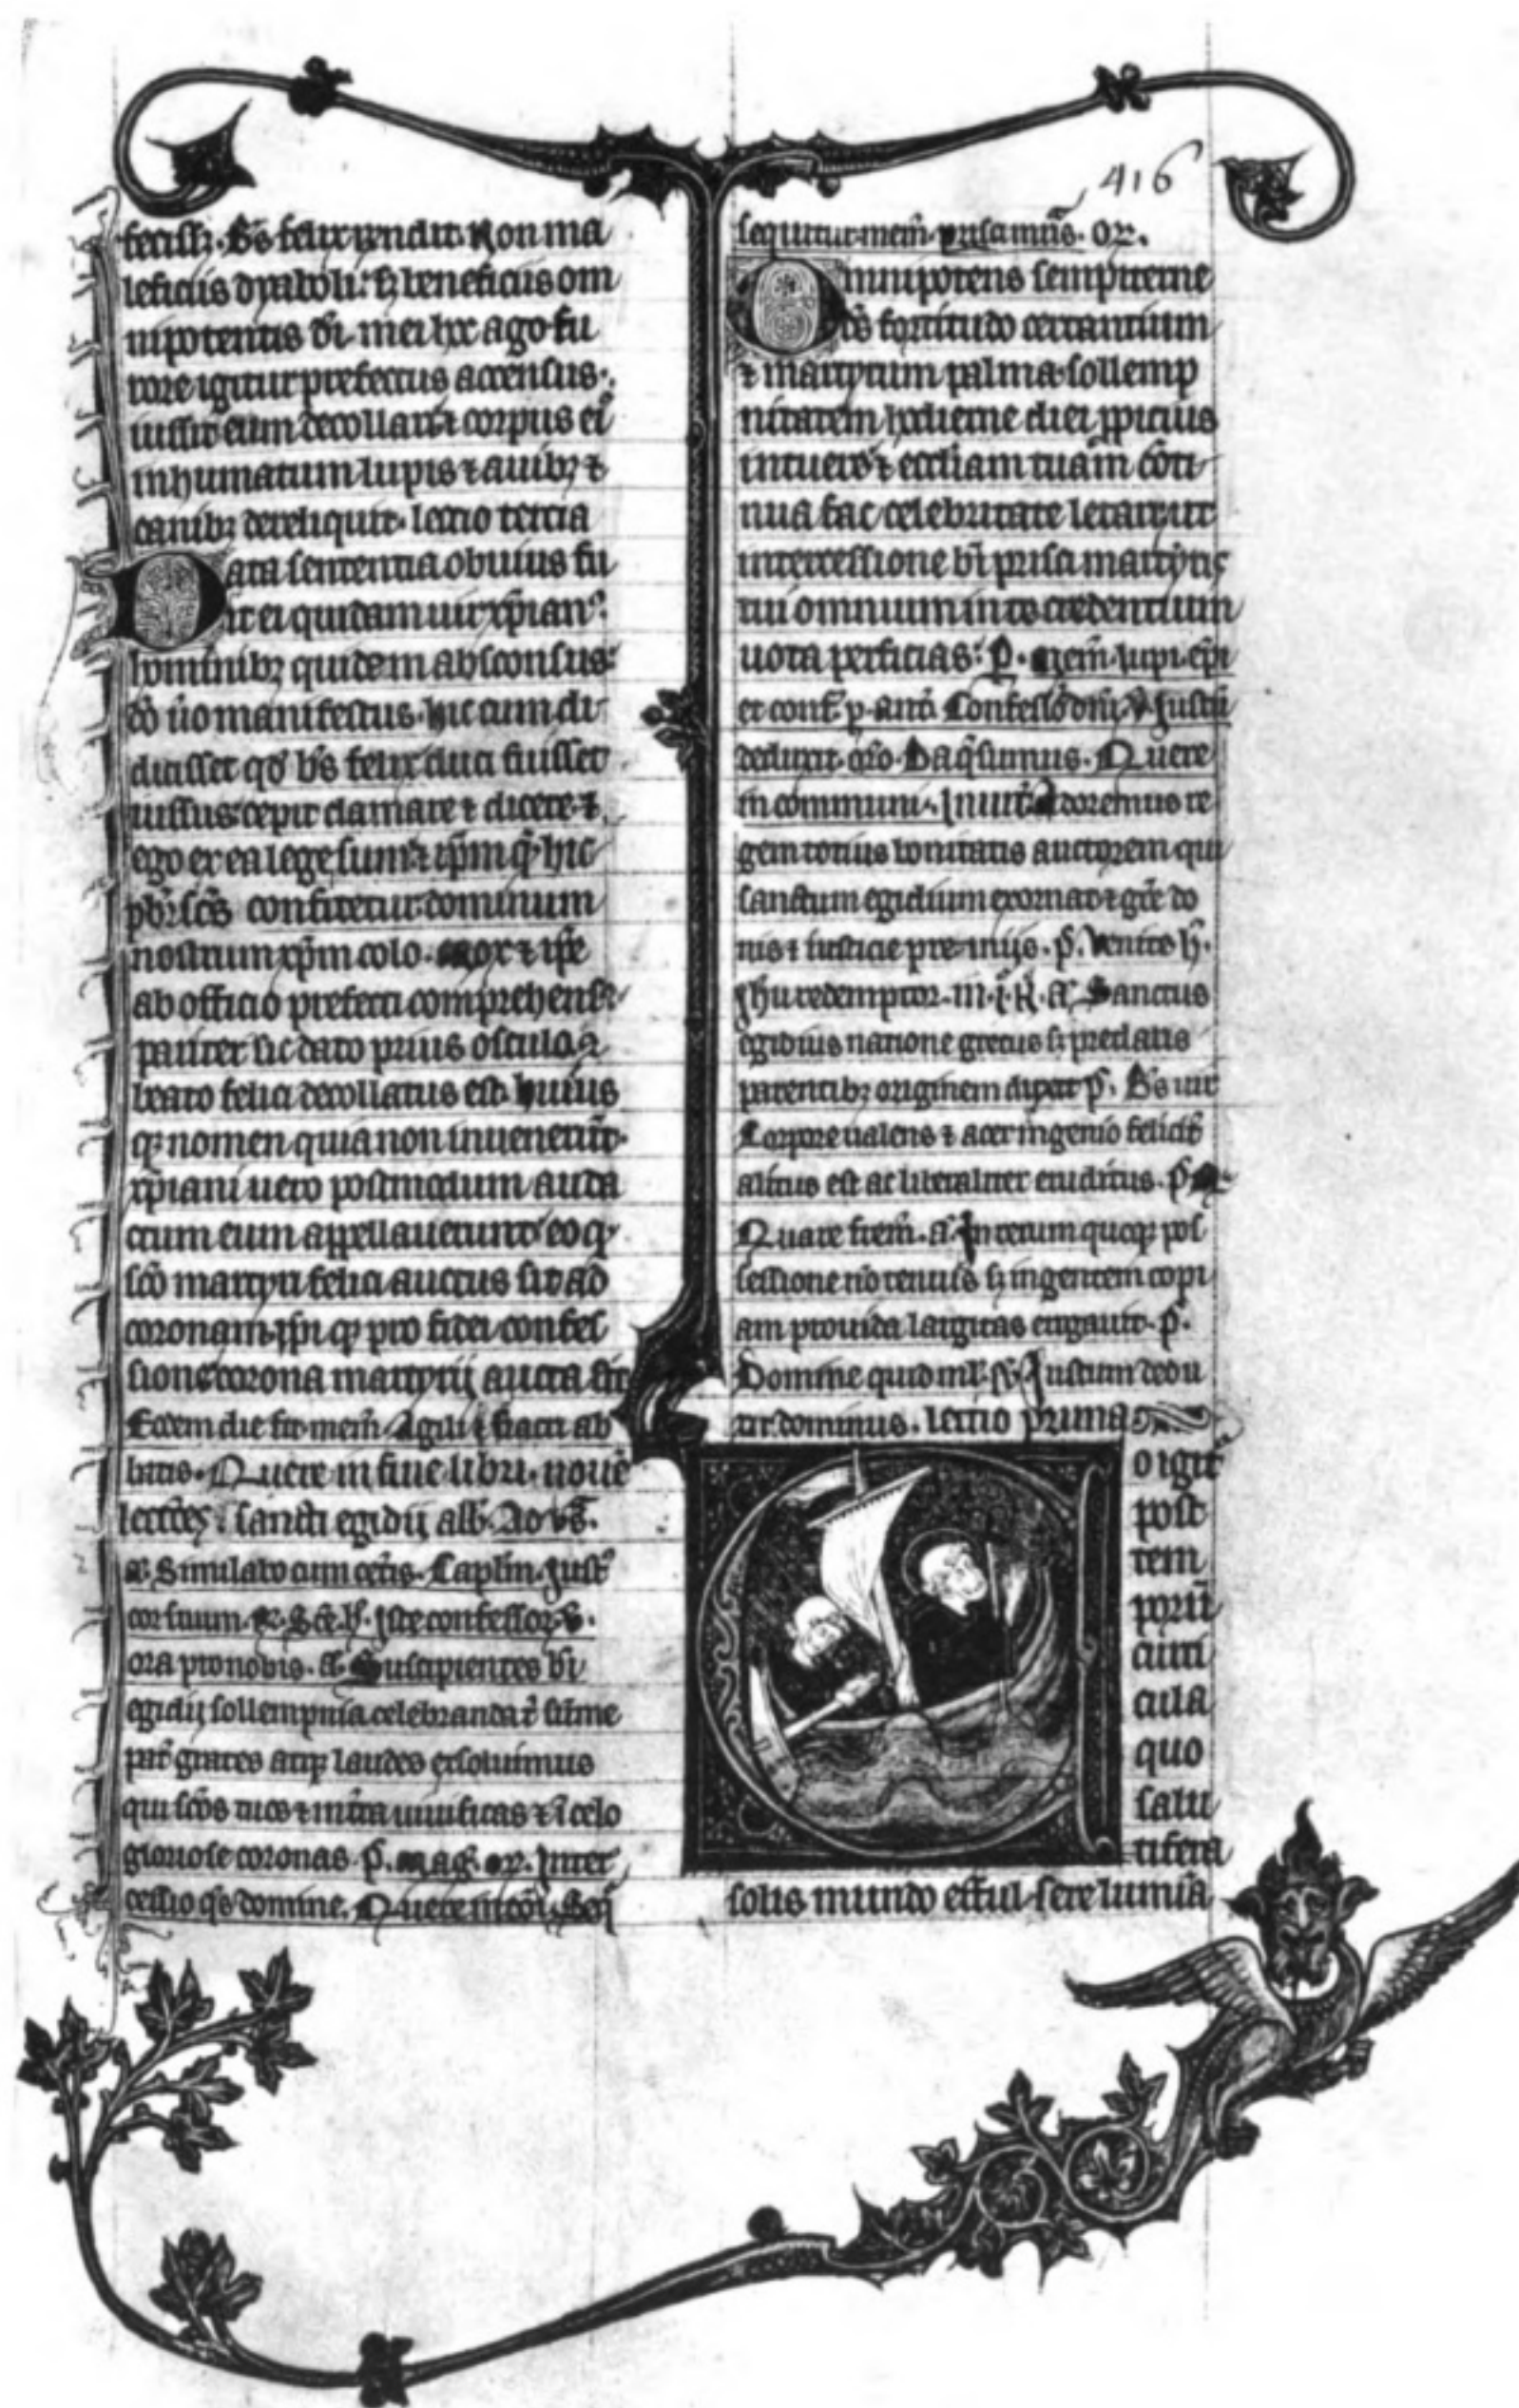 fecisti. Bs felix respondit. Non ma
leficiis dyaboli: sz beneficiis om
nipotentis di mei hec ago fu
rore igitur prefectus accensus.
iussit eum decollari & corpus eiꝰ
inhumatum lupis & auibz &
canibz dereliquit. lectio tercia
Data sententia obuius fu
it ei quidam uir xpianꝰ.
hominibz quidem absconsus:
do uo manifestus. hic cum di
dicisset qd bs felix duci fuisset
iussus: cepit clamare & dicere. &
ego ex ea lege sum & xpm que hic
pbr scs confitetur dominum
nostrum xpm colo. mox & ipse
ab officio prefecti comprehensꝰ
pariter sic dato prius osculo a
beato felici decollatus est. huius
qz nomen quia non inuenerūt.
xpiani uero postmodum auda
ctum eum appellauerunt eo qꝫ
sco martyri felici auctus sit ad
coronam. ipsi qz pro fidei confes
sione corona martyrij aucta sit
Eodem die fit mem Agili & fiacri ab
batis. Quere in fine libri. nouē
lectiōes: sancti egidij abb. Ad vs.
a. Similabo eum ceris. Caplm. Just
cor suum. R. Sce. h. Iste confessor v.
ora pro nobis. a. Suscipientes bi
egidij sollempnia celebranda tibi sūme
pat grates atqz laudes exsoluimus
qui scos tuos & mira uiuificas & i celo
gloriose coronas. p. mag. or. Inter
cessio qs domine. Quere in coi. Seq
416
sequitur mem prisci mris. or.
Omnipotens sempiterne
ds fortitudo certantium
& martyrum palma sollemp
nitatem hodierne diei ppicius
intuere & eccliam tuam cōti
nua fac celebritate letari & ut
intercessione bi prisci martyris
tui omnium in te credentium
uota perficias: p. mem. lupi. epi
et conf. p. ant. Confessor dni. v. Justū
deduxit. oro. Da qsumus. Quere
in communi. Inuit. Adoremus re
gem totius bonitatis auctorem qui
sanctum egidium exornat & gre do
nis & iusticie premijs. p. Venite h.
Jhu redemptor. in. i. N. a. Sanctus
egidius natione grecus sz preclaris
parentibz originem duxit p. Bs uir
Corpore ualens & acer ingenio felicit
alitus est ac liberaliter eruditus. p.
Quare frem. a. In rerum quoqz pos
sessione no tenuis sz ingentem copi
am prouida largitas erogauit. p.
Domine quid ml. v. Justum dedu
xit dominus. lectio prima
o igit
post
tem
porū
curri
cula
quo
salu
tifera
solis mundo efful sere lumīa